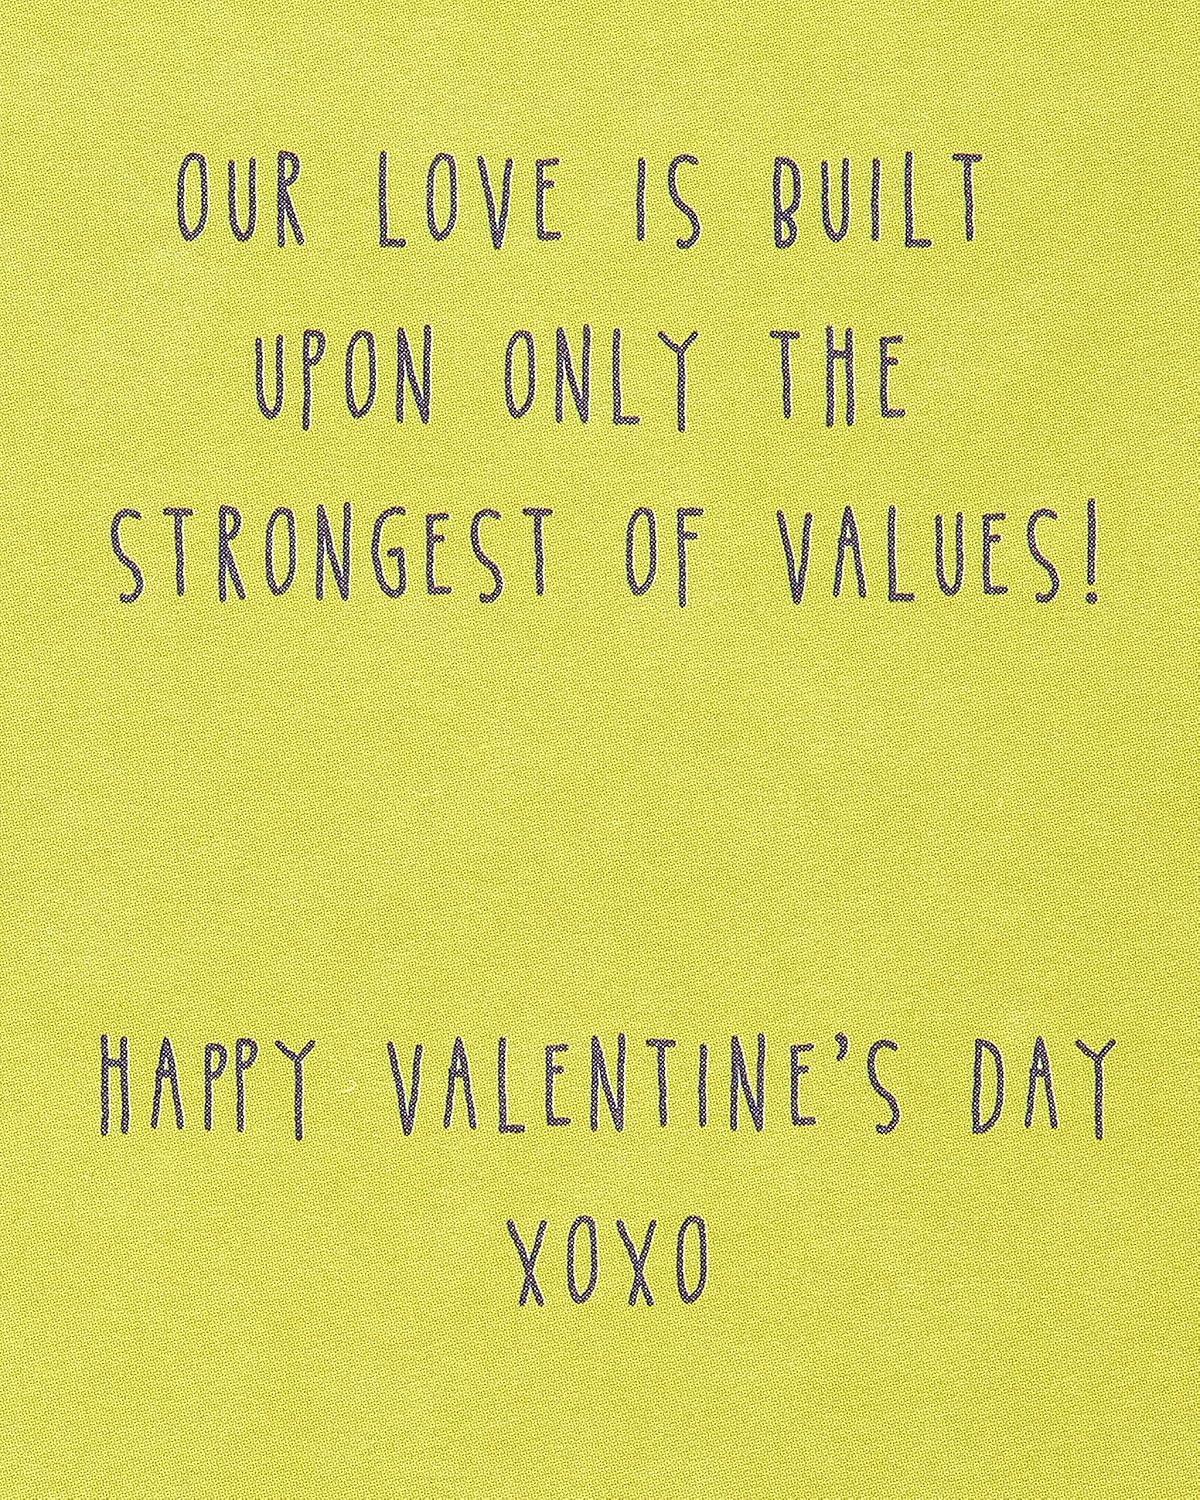 OUR LOVE IS BUILT
UPON ONLY THE
STRONGEST OF VALUES!
HAPPY VALENTINE'S DAY
XOXO